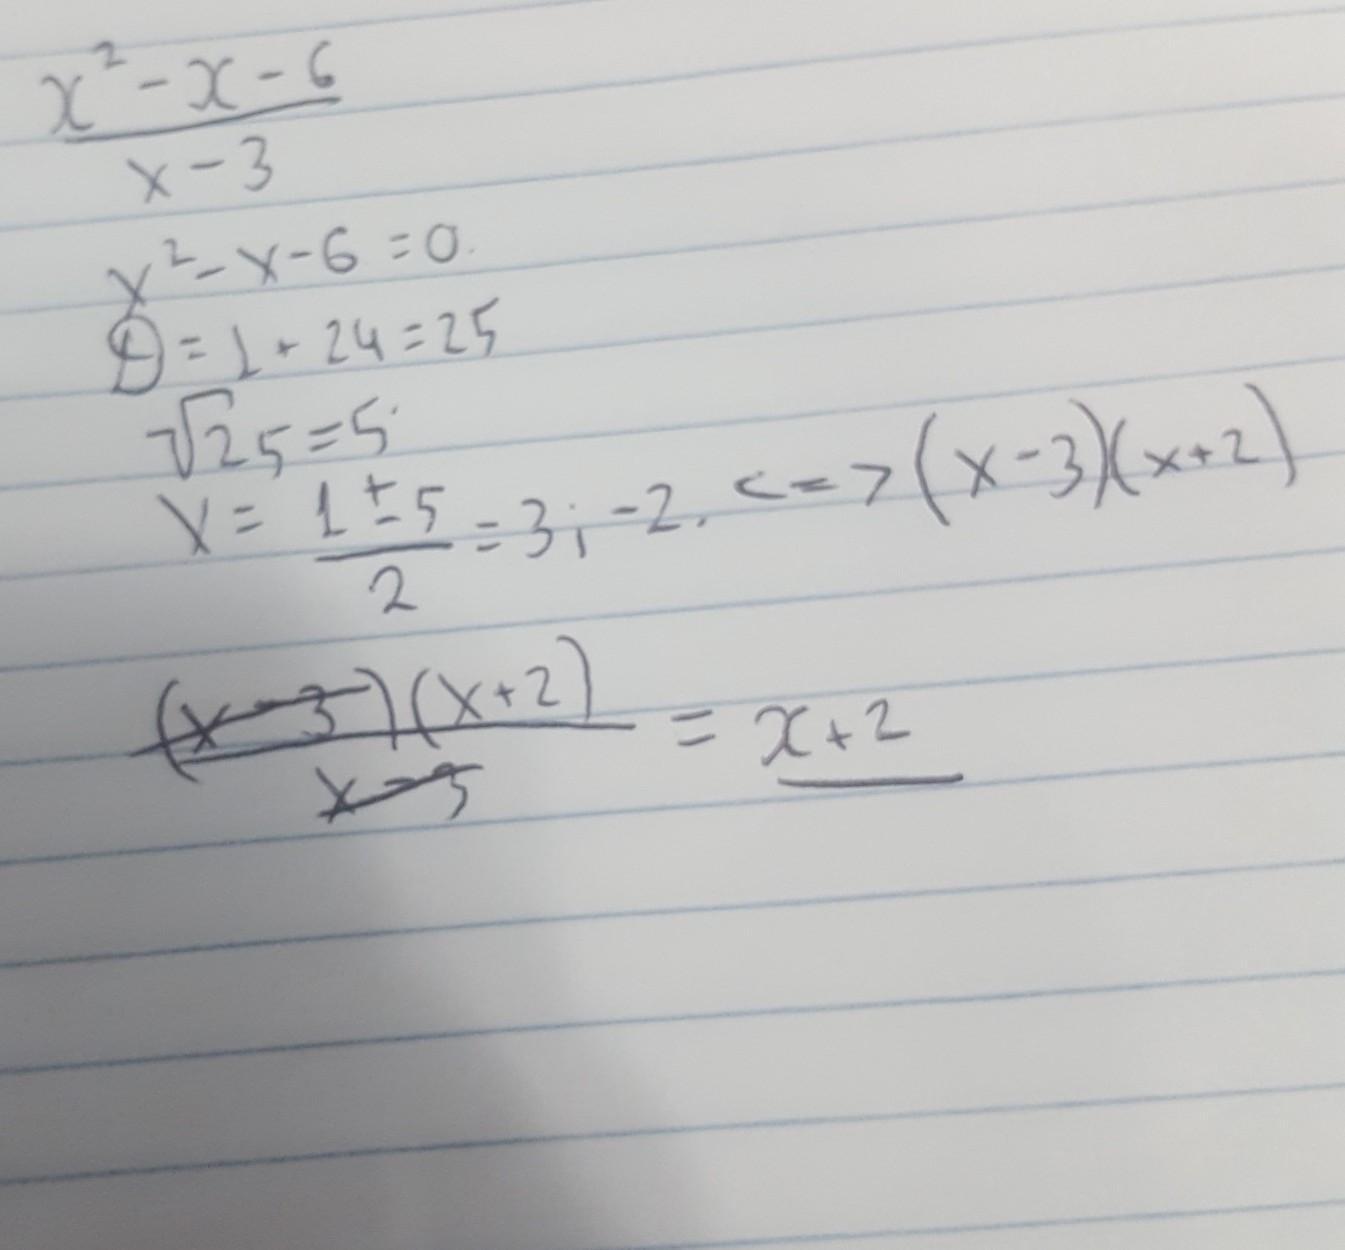 x² - x - 6
x - 3
x² - x - 6 = 0.
D = 1 + 24 = 25
√25 = 5
x = 1 ± 5 / 2 = 3; -2. <=> (x - 3)(x + 2)
(x - 3)(x + 2) / x - 3 = x + 2